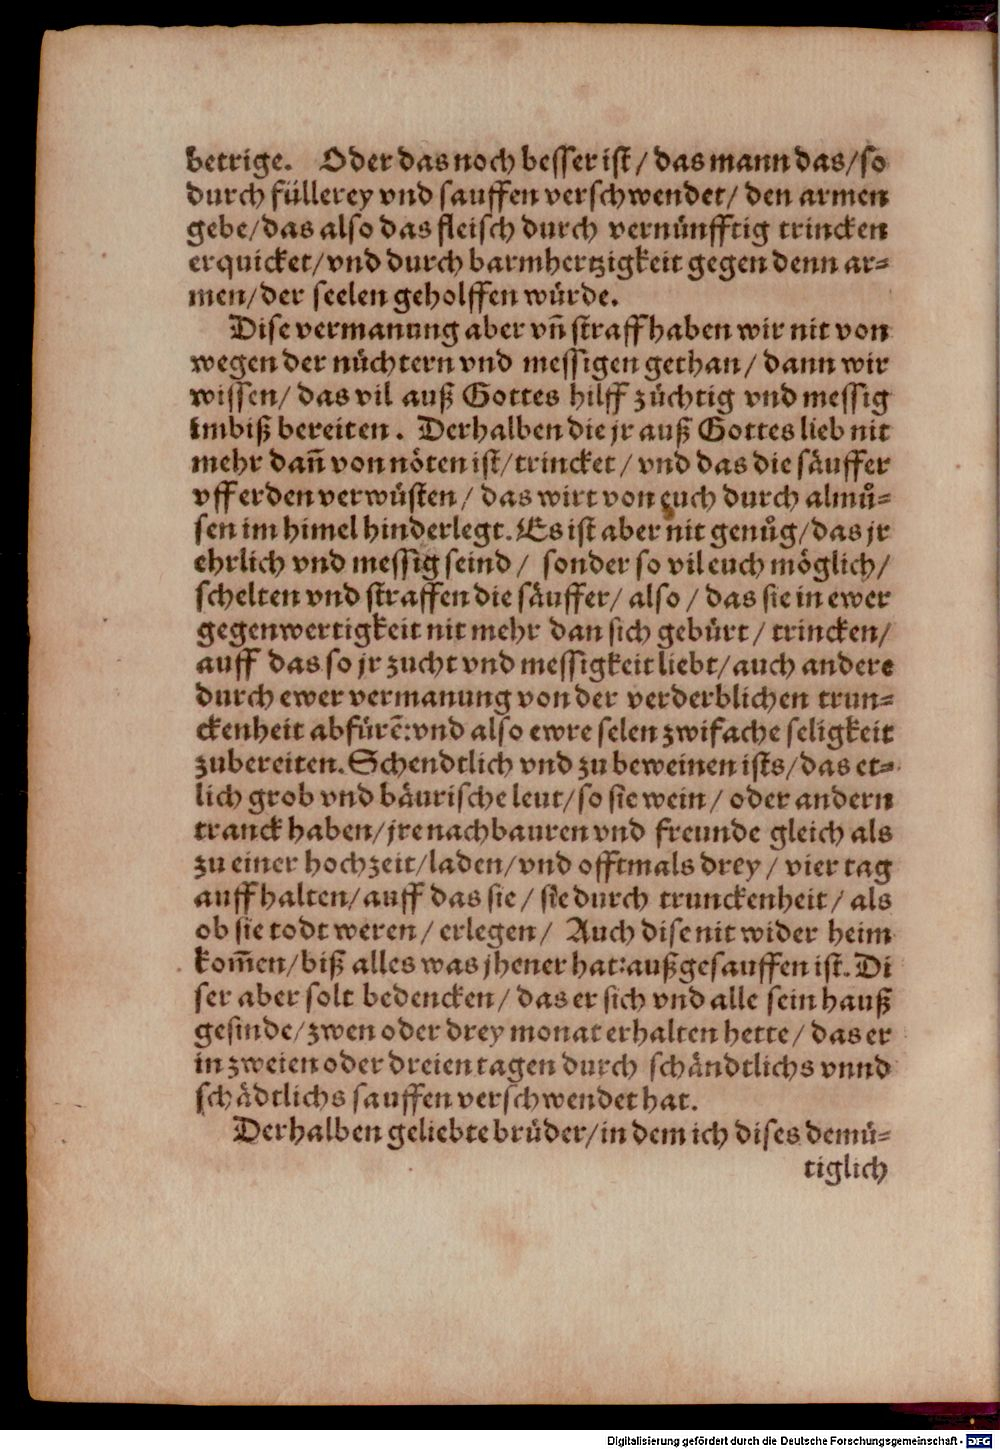 betrige. Oder das noch besser ist / das mann das/so
durch füllerey vnd sauffen verschwendet/ den armen
gebe/das also das fleisch durch vernünfftig trincken
erquicket/vnd durch barmhertzigkeit gegen denn ar-
men/der seelen geholffen würde.
Dise vermanung aber vñ straff haben wir nit von
wegen der nüchtern vnd messigen gethan/ dann wir
wissen/ das vil auß Gottes hilff züchtig vnd messig
imbiß bereiten. Derhalben die jr auß Gottes lieb nit
mehr dañ von nöten ist/trincket/ vnd das die säuffer
vff erden verwüsten/ das wirt von euch durch almů-
sen im himel hinderlegt. Es ist aber nit genůg/das jr
ehrlich vnd messig seind/ sonder so vil euch möglich/
schelten vnd straffen die säuffer/ also / das sie in ewer
gegenwertigkeit nit mehr dan sich gebürt/ trincken/
auff das so jr zucht vnd messigkeit liebt/auch andere
durch ewer vermanung von der verderblichen trun-
ckenheit abfürẽ:vnd also ewre selen zwifache seligkeit
zubereiten. Schendtlich vnd zu beweinen ists/das et-
lich grob vnd bäurische leut/so sie wein/ oder andern
tranck haben/jre nachbauren vnd freunde gleich als
zu einer hochzeit/laden/vnd offtmals drey/ vier tag
auff halten/auff das sie/ sie durch trunckenheit/ als
ob sie todt weren/ erlegen/ Auch dise nit wider heim
kom̃en/biß alles was jhener hat:außgesauffen ist. Di
ser aber solt bedencken/ das er sich vnd alle sein hauß
gesinde/zwen oder drey monat erhalten hette/ das er
in zweien oder dreien tagen durch schändtlichs vnnd
schädtlichs sauffen verschwendet hat.
Derhalben geliebte brüder/in dem ich dises demü-
tiglich
Digitalisierung gefördert durch die Deutsche Forschungsgemeinschaft - DFG